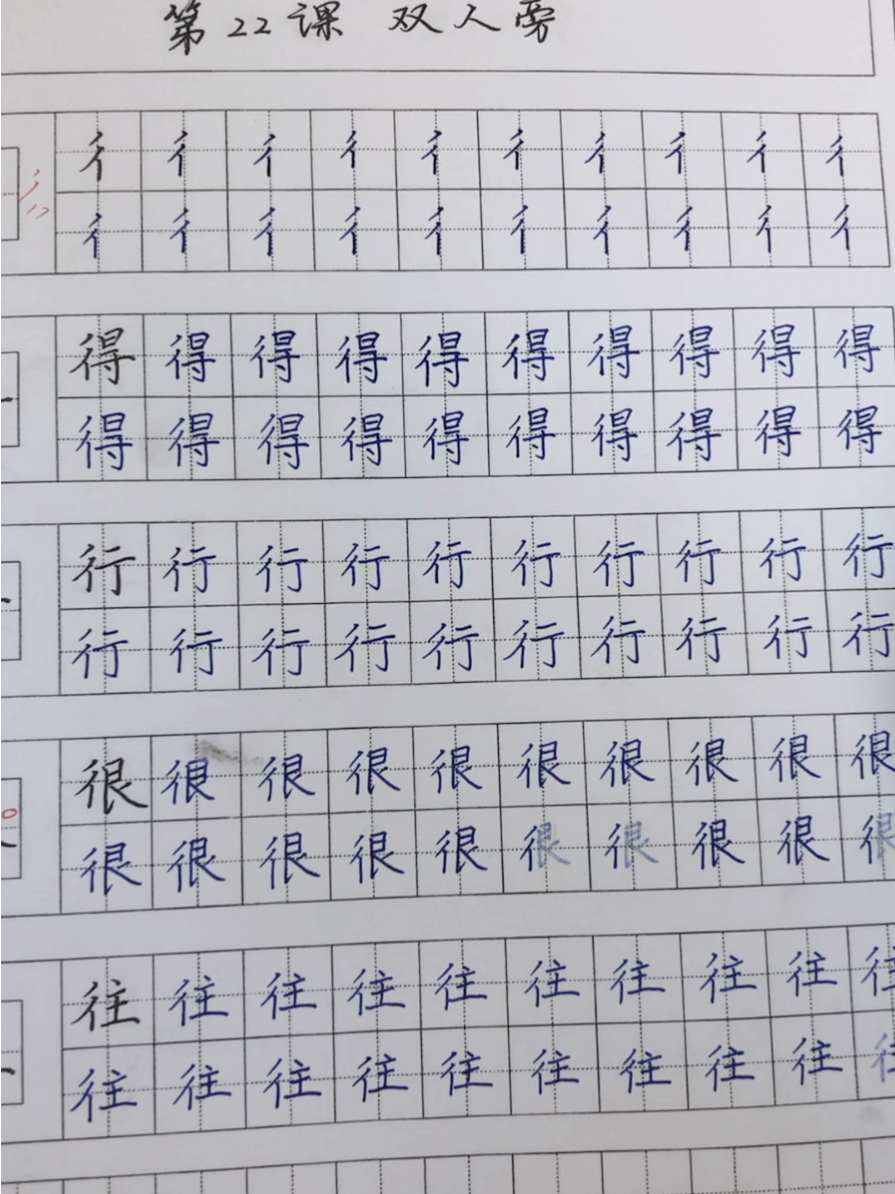 第22课 双人旁
彳彳彳彳彳彳彳彳彳彳
彳彳彳彳彳彳彳彳彳彳
得得得得得得得得得得
得得得得得得得得得得
行行行行行行行行行行
行行行行行行行行行行
很很很很很很很很很很
很很很很很很很很很很
往往往往往往往往往往
往往往往往往往往往往